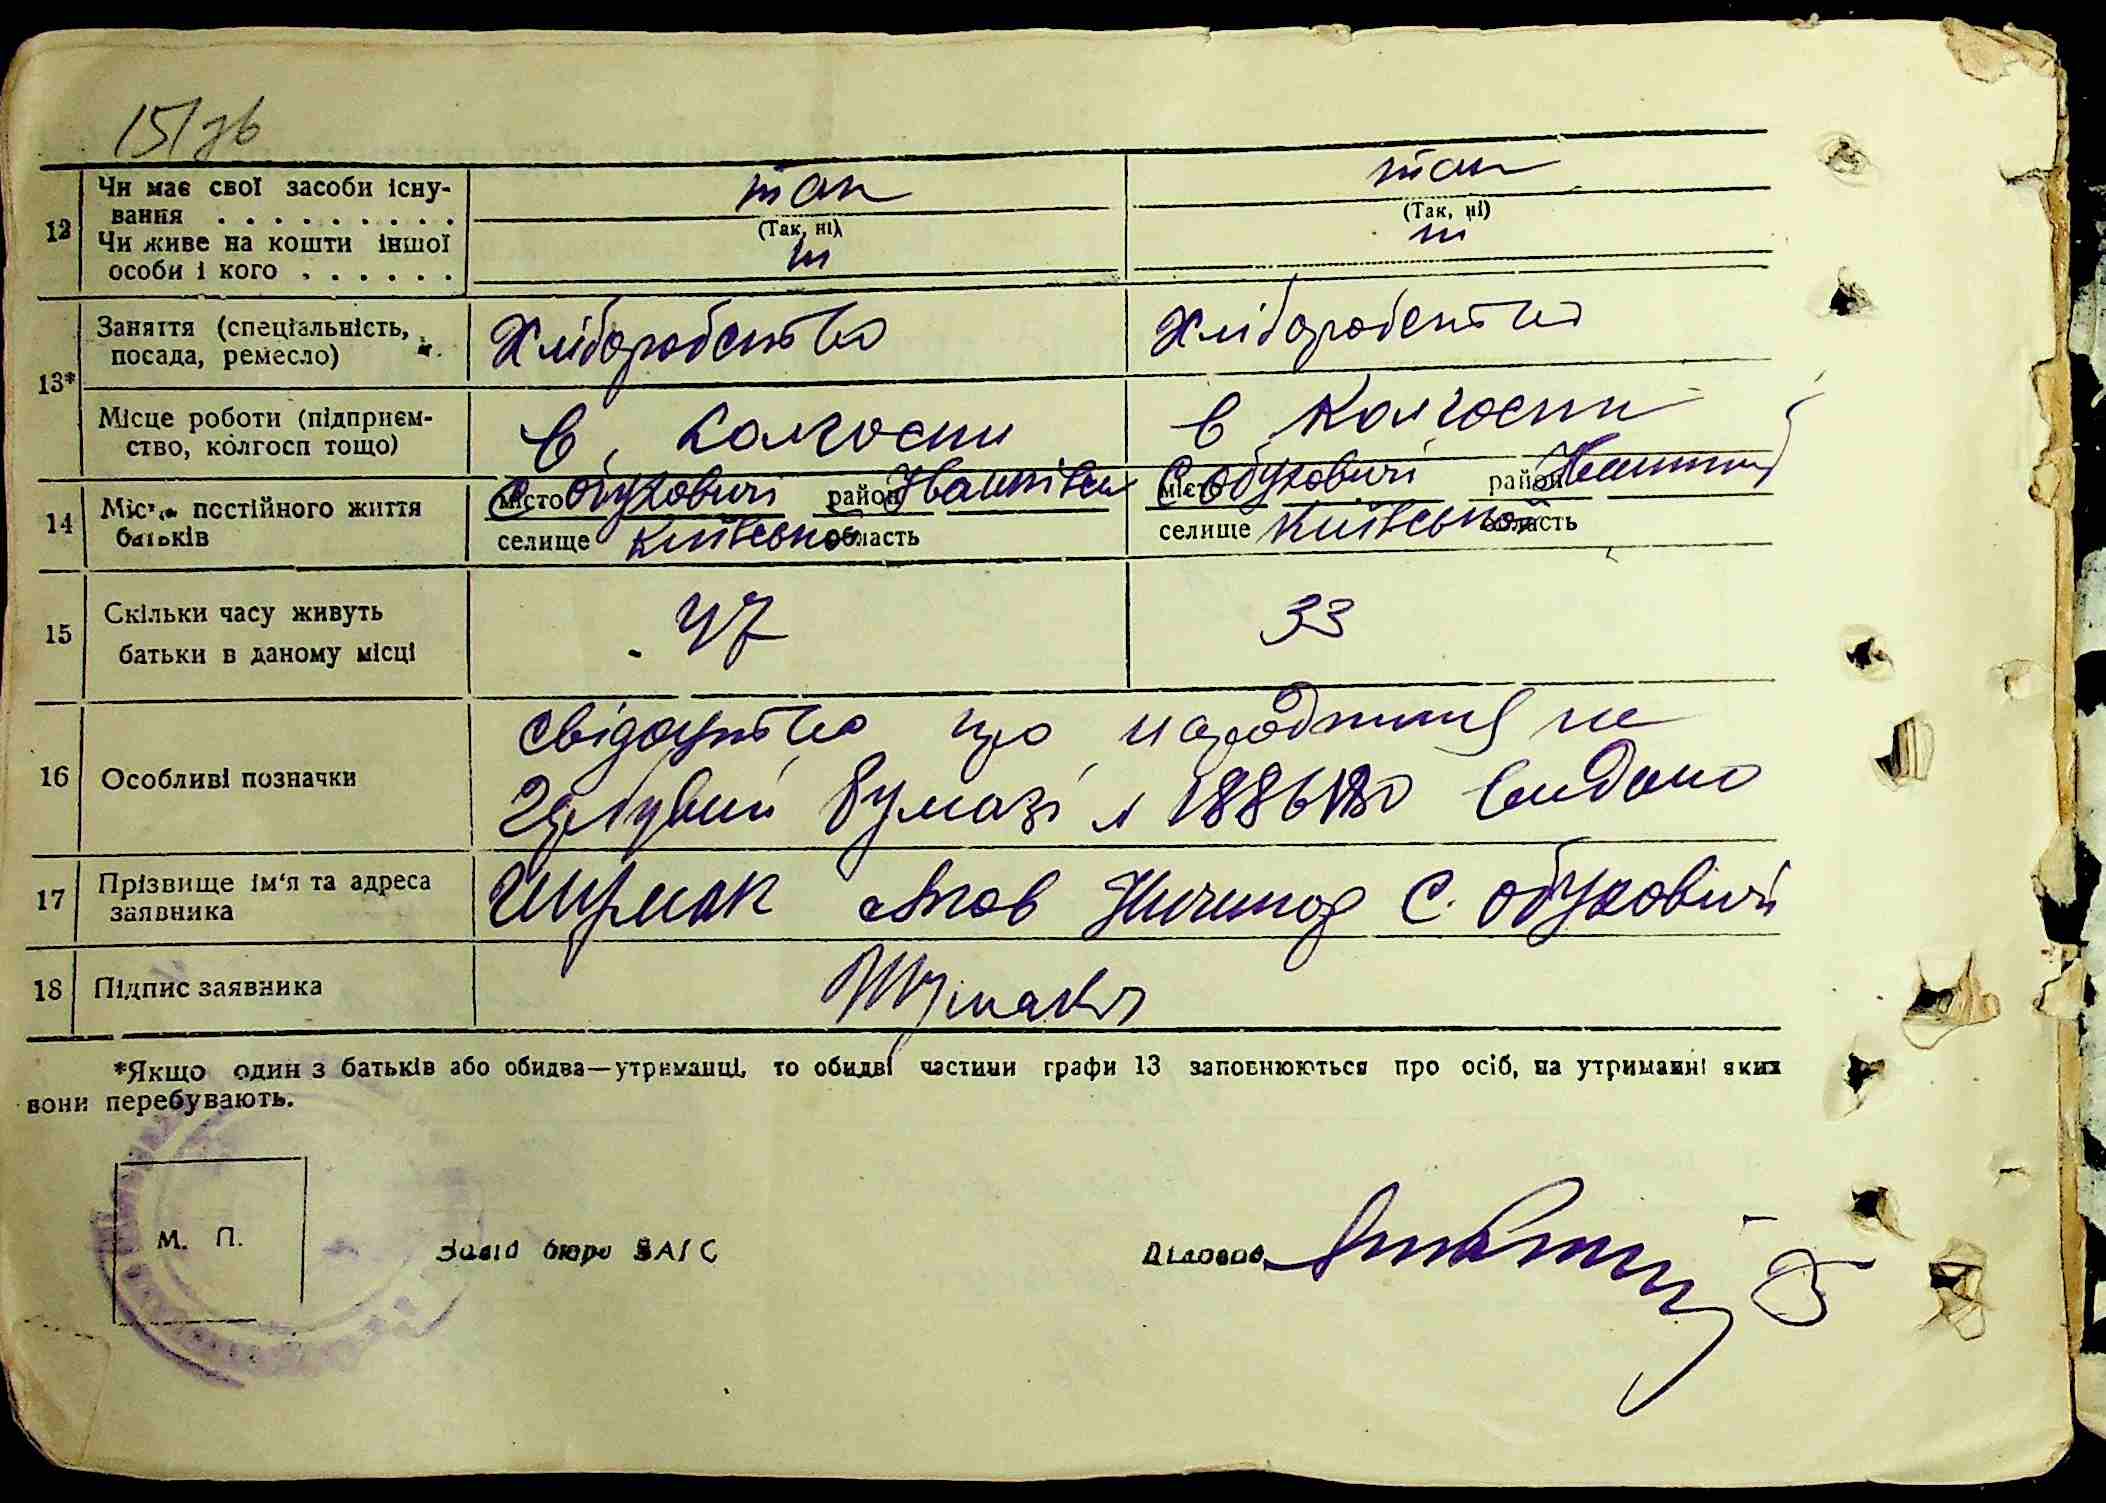 151зв
12 Чи має свої засоби існу- так так
вання . . . . . . . . . (Так, ні) (Так, ні)
Чи живе на кошти іншої ні ні
особи і кого . . . . . .
13* Заняття (спеціальність, Хліборобство Хліборобство
посада, ремесло)
Місце роботи (підприєм- в колгоспи в колгоспи
ство, колгосп тощо)
14 Місце постійного життя місто С Обуховичі район Іванківськ місто С Обуховичі район
батьків селище Київської область селище Київської область
15 Скільки часу живуть 47 33
батьки в даному місці
свідоцтво про народження на
16 Особливі позначки
бумазі № 1886180 видано
17 Прізвище ім'я та адреса Яков С. Обуховичі
заявника
18 Підпис заявника
*Якщо один з батьків або обидва—утриманці, то обидві частини графи 13 заповнюються про осіб, на утриманні яких
вони перебувають.
М. П.
Завід бюро ЗАГС Діловод